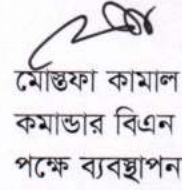 মোস্তফা কামাল
কমান্ডার বিএন
পক্ষে ব্যবস্থাপন